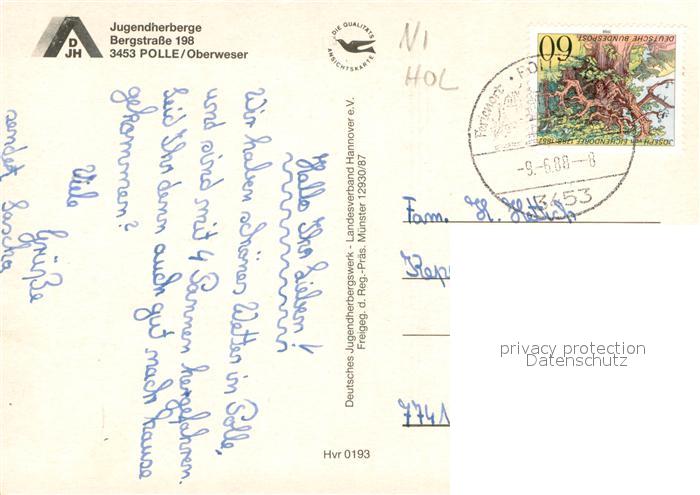 Jugendherberge
Bergstraße 198
3453 POLLE/Oberweser
D
JH
DIE QUALITÄTS
ANSICHTSKARTE
NI
HOL
60
DEUTSCHE BUNDESPOST
JOSEPH VON EICHENDORFF 1788-1857
Ferienort
-9.-6.88--8
3453
Hallo Ihr Lieben!
Wir haben schönes Wetter in Polle,
und sind mit 4 Pannen hergefahren.
Seid Ihr denn auch gut nach hause
gekommen?
Viele Grüße
sendet Sascha
Deutsches Jugendherbergswerk - Landesverband Hannover e.V.
Freigeg. d. Reg.-Präs. Münster 12930/87
Hvr 0193
Fam. H.
774
privacy protection
Datenschutz